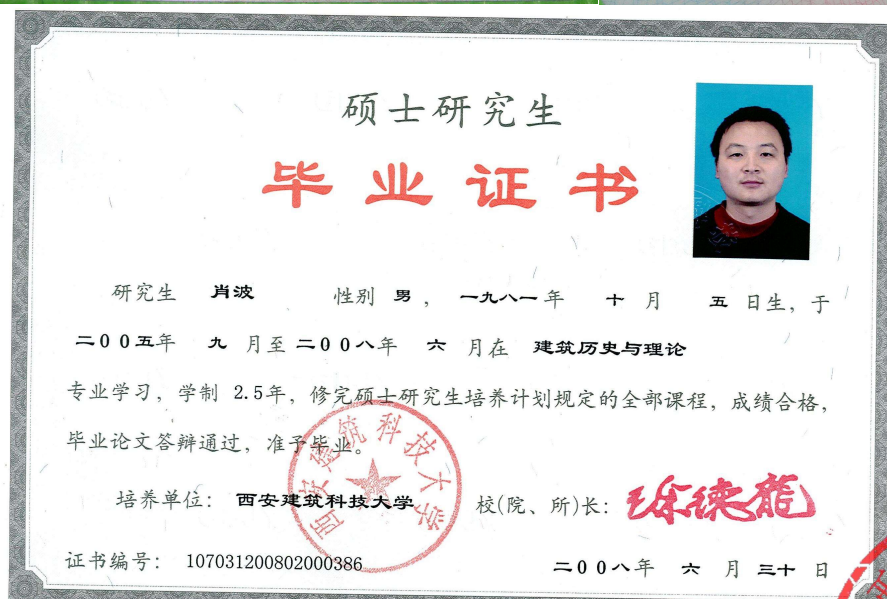 硕士研究生
毕业证书
研究生 肖波 性别 男，一九八一年 十 月 五 日生，于
二00五年 九 月至 二00八年 六 月在 建筑历史与理论
专业学习，学制 2.5年，修完硕士研究生培养计划规定的全部课程，成绩合格，
毕业论文答辩通过，准予毕业。
西安建筑科技大学
培养单位：西安建筑科技大学 校(院、所)长：徐德龙
证书编号：107031200802000386 二00八年 六 月 三十 日